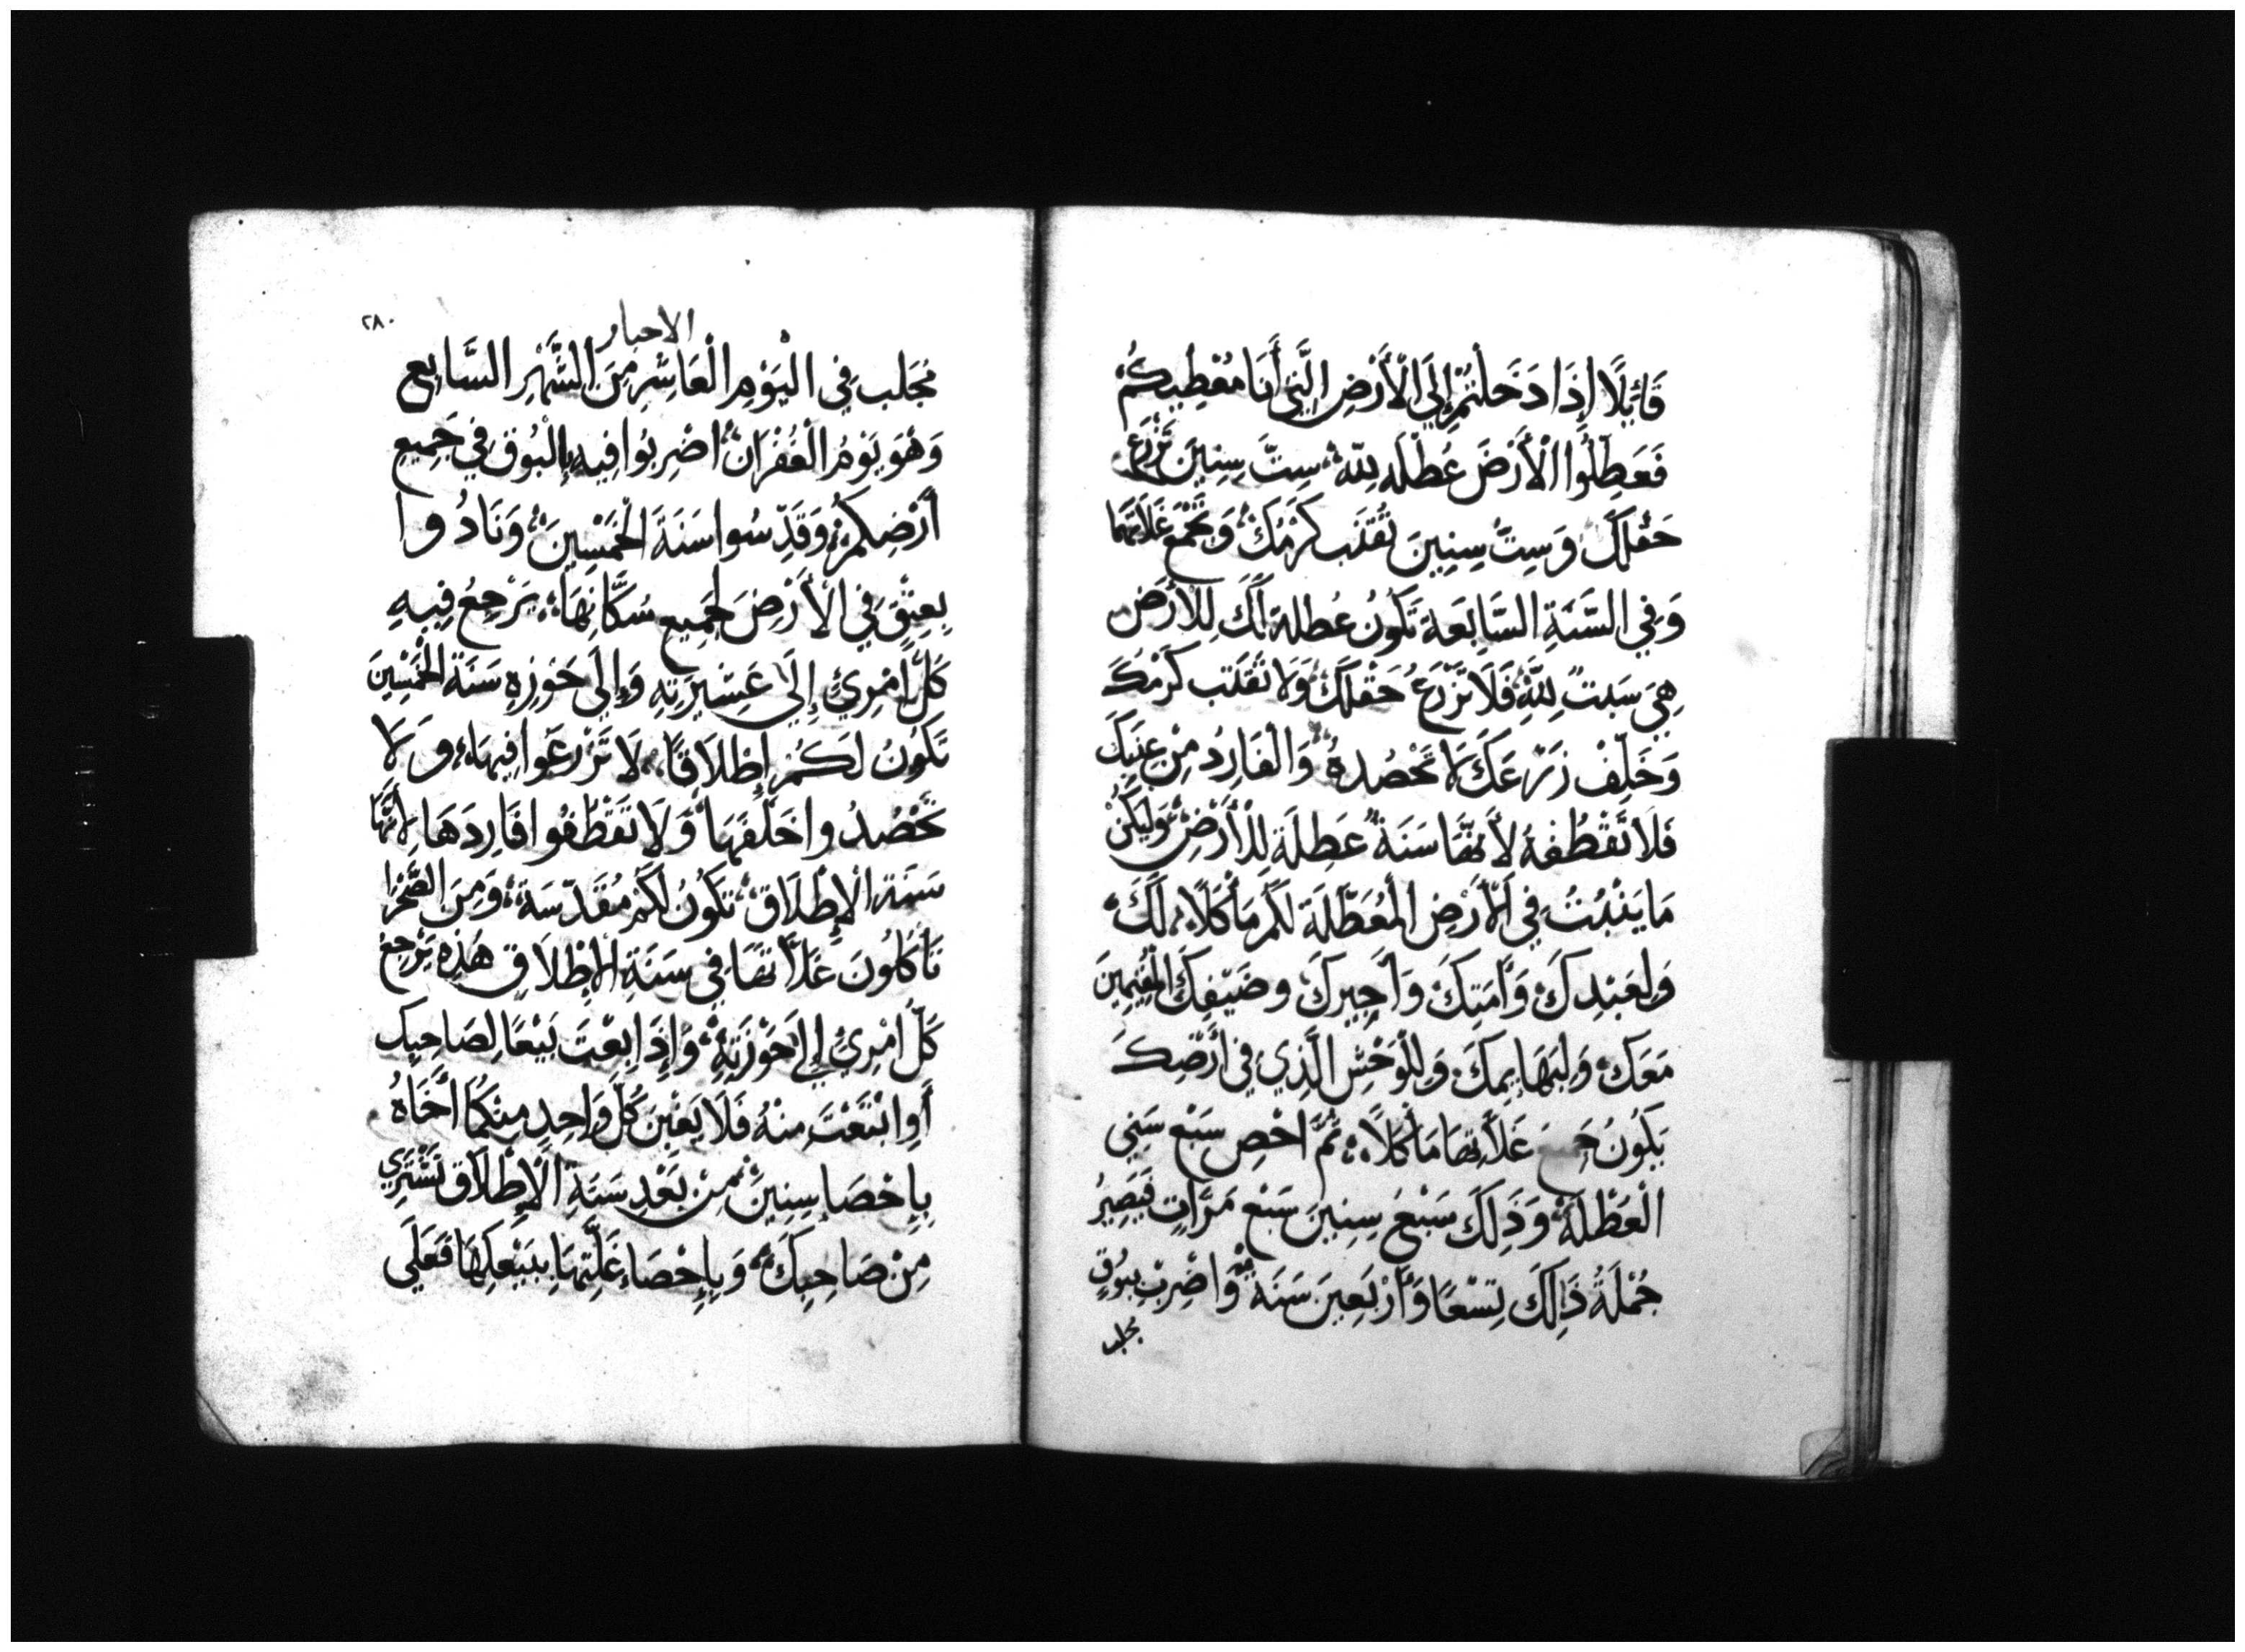 قَائِلًا إِذَا دَخَلْتُمْ إِلَى الْأَرْضِ الَّتِي أَنَا مُعْطِيكُمْ
فَعَطِّلُوا الْأَرْضَ عُطْلَه لِلّه سِتَّ سِنِينَ تَزْرَعُ
حَقْلَكَ وَسِتَّ سِنِينَ تُقَنِّب كَرْمَكَ وَتَجْمَع غَلَّاتهَا
وَفِي السَّنَةِ السَّابِعَة تَكُونُ عُطلة لَكَ لِلْأَرْضِ
هِيَ سَبتٌ لِلّهِ فَلَا تَزْرَعُ حَقْلَكَ وَلَا تُقَنِّب كَرْمَكَ
وَخَلِّفْ زَرْعَكَ لَا تَحْصُدهُ وَالْفَارِدُ مِنْ عِنَبِكَ
فَلَا تَقْطُفهُ لأَنَّهَا سَنَةُ عَطِلَة لِلْأَرْضِ وَلْيَكُنْ
مَا يَنْبُتُ فِي الْأَرْضِ الْمُعَطَّلَة لَكُم مَأْكَلًا لَكَ
وَلِعَبْدِكَ وَأَمَتِكَ وَأَجِيرِكَ وضَيْفِكَ الْمُقِيمِينَ
مَعَكَ وَلِبَهَايِمِكَ وَلِلْوَحْشِ الَّذِي فِي أَرْضِكَ
يَكُونُ جَمِيعَ غَلَّاتِهَا مَأْكَلًا ثُمَّ احْصِ سَبْع سَنِي
الْعُطْلَة وَذَلِكَ سَبْعَ سِنِينَ سَبْع مَرَّاتٍ فَيَصِيرُ
جُمْلَةُ ذَلِكَ تِسْعًا وَأَرْبَعِينَ سَنَة وَاضْرِبْ بِبُوقٍ
مجلب
٢٨٠
الاحبار
مُجَلب فِي الْيَوْمِ الْعَاشِرِ مِنَ الشَّهْرِ السَّابِعِ
وَهُوَ يَوْمُ الْغُفْرَانْ اضْرِبُوا فِيهِ بِالْبُوق فِي جَمِيعِ
أَرْضِكُمْ وَقَدِّسُوا سَنَةَ الْخَمْسِينَ وَنَادُوا
بِعِتْقٍ فِي الْأَرْضِ لِجَمِيعِ سُكَّانِهَا يَرْجِعُ فِيهِ
كُلّ امْرِئٍ إِلَى عَشِيرَتِهِ وَإِلَى حَوْزِهِ سَنَة الْخَمْسِينَ
تَكُونُ لَكُمْ إِطْلَاقًا لَا تَزْرَعُوا فِيهَا وَلَا
تَحْصُدُوا خَلَفَهَا وَلَا تَقْطُفُوا فَارِدَهَا لِأَنَّهَا
سَنَة الْإِطْلَاق تَكُونُ لَكُم مُقَدَّسَة وَمِنَ الصَّحْرَا
تَأْكُلُونَ غَلَّاتهَا فِي سَنَةِ الْإِطْلَاقِ هَذِهِ يَرْجِعُ
كُلّ امْرِئٍ إِلَى حَوْزَتِهِ وَإِذَا بِعْتَ بَيْعًا لِصَاحِبِكَ
أَوِ ابْتَعْتَ مِنْهُ فَلَا يَغْبِنْ كُلّ وَاحِدٍ مِنْكُمَا أَخَاهُ
بِإِحْصَا سِنِينَ مِنْ بَعْدِ سَنَةِ الْإِطْلَاق تَشْتَرِي
مِنْ صَاحِبِكَ وَبِإِحْصَاء غَلَّتِهَا يَبِيْعكهَا فَعَلَى